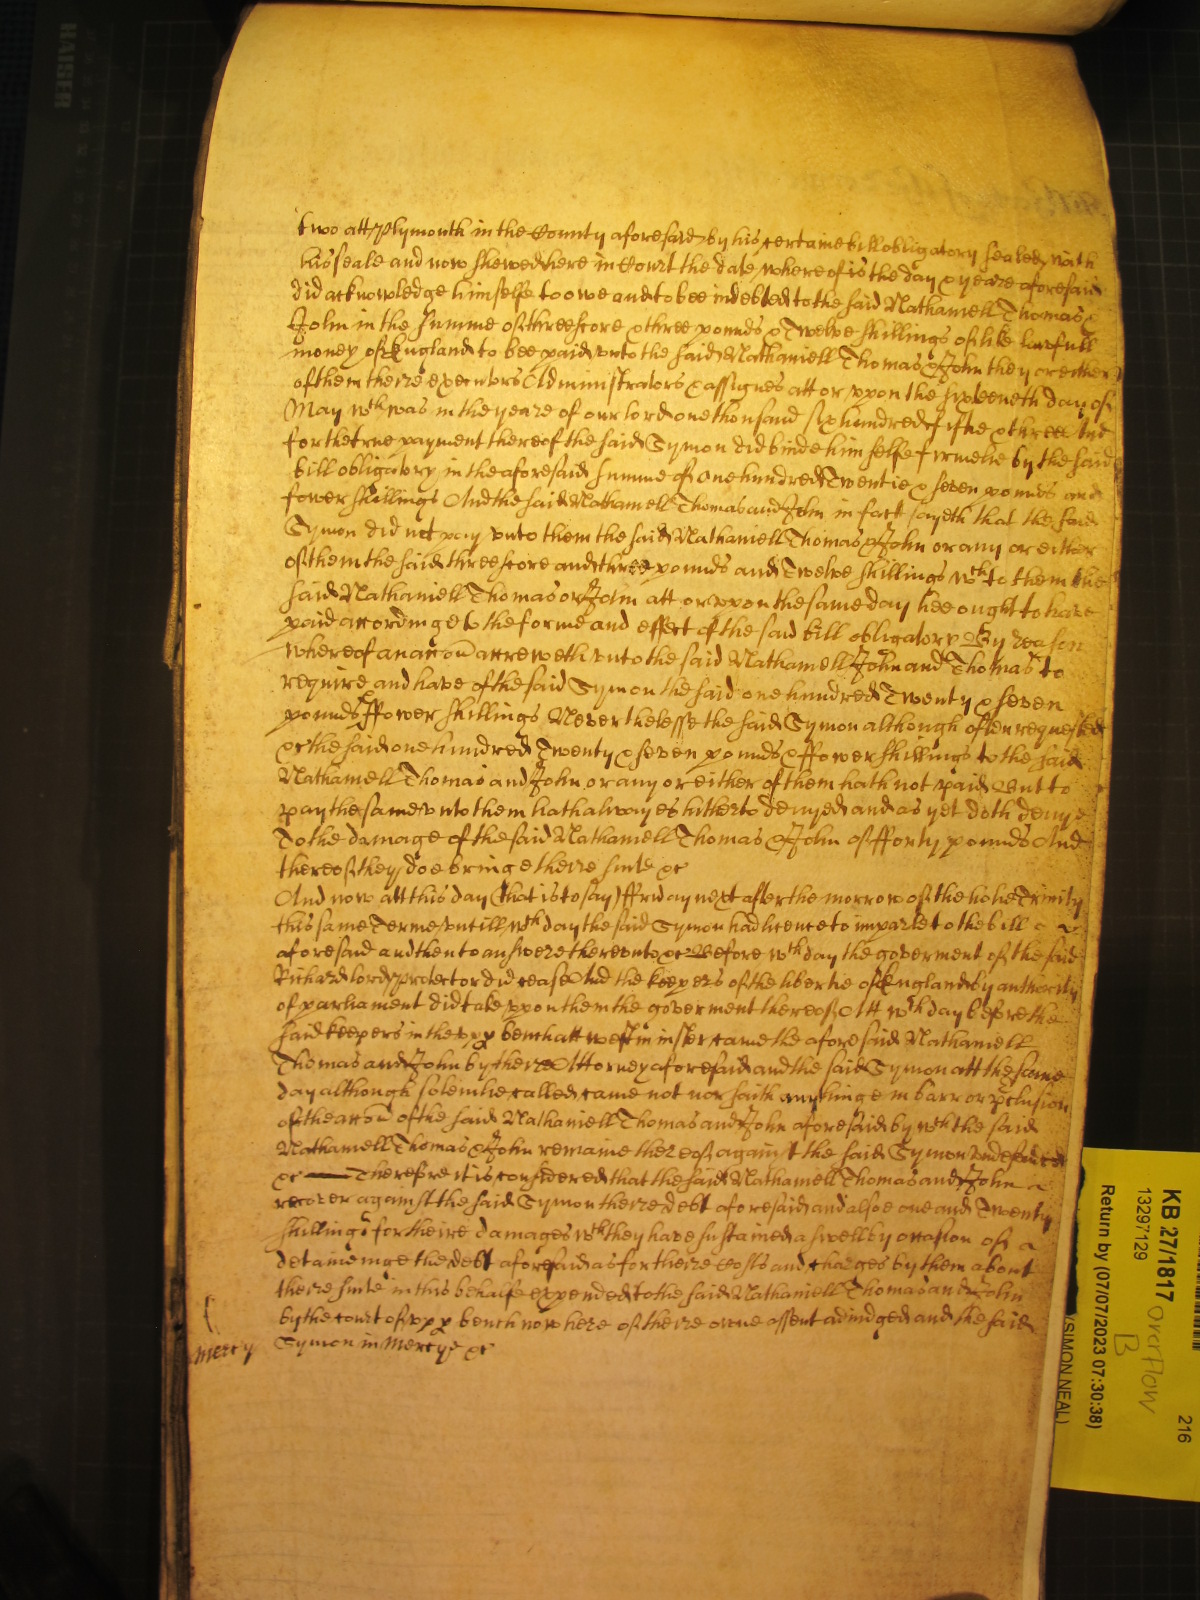 two att Plymouth in the County aforesaid by his certaine bill obligatory sealed with
his seale and now shewed here in Court the date whereof is the day & yeare aforesaid
did acknowledge himselfe to owe and to bee indebted to the said Nathaniell Thomas &
John in the summe of threescore & three pounds & Twelve shillings of like lawfull
money of England to bee paid unto the said Nathaniell Thomas & John they or either
of them theire executors Administrators & assignes att or uppon the sixteeneth day of
May wch was in the yeare of our lord one thousand six hundred fiftie & three And
for the true payment thereof the said Symon did binde himselfe firmelie by the said
bill obligatory in the aforesaid summe of one hundred Twentie & seven pounds and
fower shillings And the said Nathaniell Thomas and John in fact sayeth that the said
Symon did not pay unto them the said Nathaniell Thomas & John or any or either
of them the said threescore and three pounds and Twelve shillings wch to them the
said Nathaniell Thomas or John att or uppon the same day hee ought to have
paid accordinge to the forme and effect of the said bill obligatory By reason
whereof an accon accreweth unto the said Nathaniell John and Thomas to
require and have of the said Symon the said one hundred Twenty & seven
pounds & ffower shillings Neverthelesse the said Symon although often requested
&c the said one hundred Twenty & seven pounds & ffower shillings to the said
Nathaniell Thomas and John or any or either of them hath not paid But to
pay the same unto them hath alwayes hitherto denyed and as yet doth denye
To the damage of the said Nathaniell Thomas & John of fforty pounds And
thereof they doe bringe theire suite &c
And now att this day (that is to say) ffriday next after the morrow of the holie Trinity
this same Terme untill wch day the said Symon had licence to imparle to the bill
aforesaid and then to answere thereunto &c Before wch day the goverment of the said
Richard lord Protector did cease And the keepers of the libertie of England by authority
of parliament did take uppon them the goverment thereof Att wch day before the
said keepers in the upp bench att westminster came the aforesaid Nathaniell
Thomas and John by theire Attorney aforesaid and the said Symon att the same
day although solemlie called came not nor saith anythinge in barr or pclusion
of the accon of the said Nathaniell Thomas and John aforesaid by wch the said
Nathaniell Thomas & John remaine thereof against the said Symon undefended
&c Therefore it is considered that the said Nathaniell Thomas and John
recover against the said Symon theire debt aforesaid and alsoe one and Twenty
shillings for theire damages wch they have sustained aswell by occasion of
detaineinge the debt aforesaid as for theire Costs and charges by them about
theire suite in this behalfe expended to the said Nathaniell Thomas and John
by the court of upp bench now here of theire owne assent adiudged and the said
Symon in Mercye &c
Mercy
KB 27/1817
13297129
overflow
B
216
Return by (07/07/2023 07:30:38)
(SIMON NEAL)
HAISER